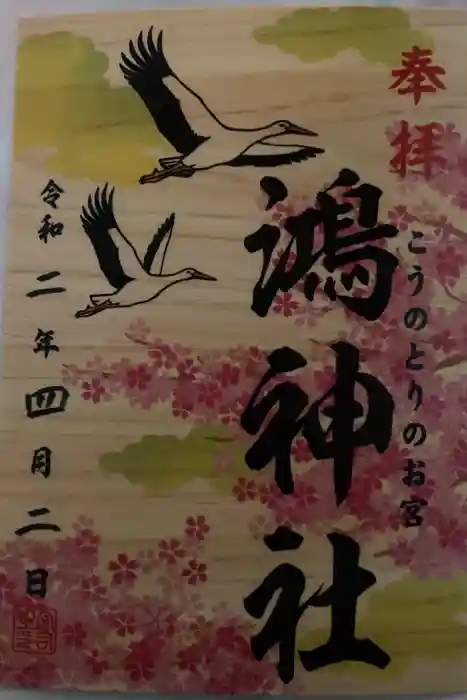 奉拝
こうのとりのお宮
鴻神社
令和二年四月二日